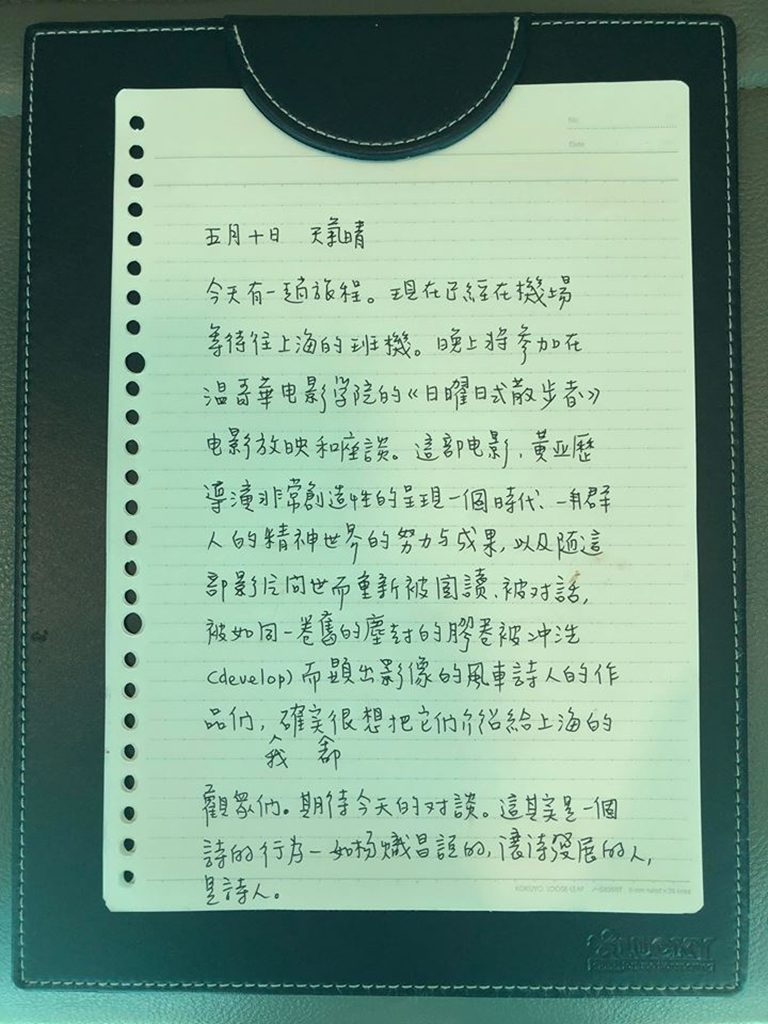 No.
Date
五月十日 天氣晴
今天有一趟旅程。現在已經在機場
等待往上海的班機。晚上將參加在
温哥華电影学院的《日曜日式散步者》
电影放映和座談。這部电影,黃亚歷
導演非常創造性的呈現一個時代、一群
人的精神世界的努力与成果,以及随這
部影片问世而重新被閱讀、被对話,
被如同一卷舊的塵封的膠卷被冲洗
(develop)而顯出影像的風車詩人的作
品们,確实很想把它们介绍給上海的
我 都
觀眾们。期待今天的对談。這其实是一個
詩的行为—如杨熾昌説的,讓詩發展的人,
是詩人。